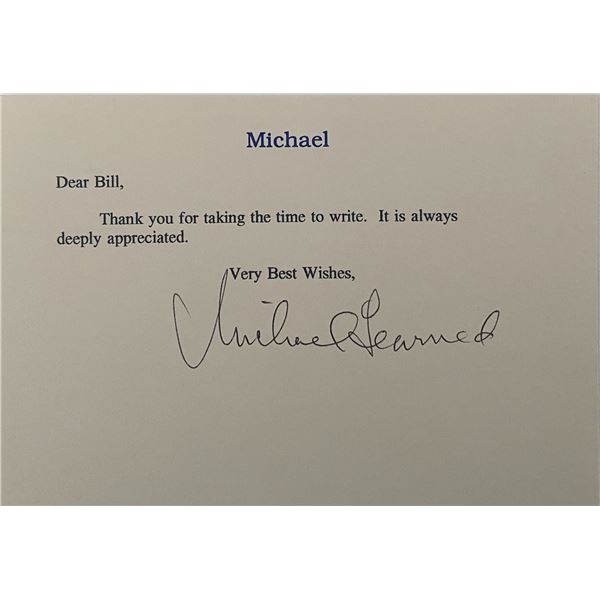 Michael
Dear Bill,
Thank you for taking the time to write. It is always
deeply appreciated.
Very Best Wishes,
Michael Learned